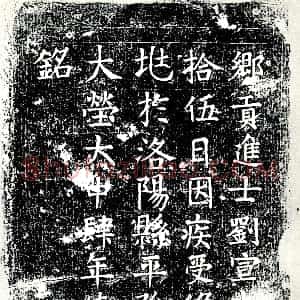 鄉貢進士劉宣
拾伍日因疾
於洛陽縣平
大塋大中肆年
銘